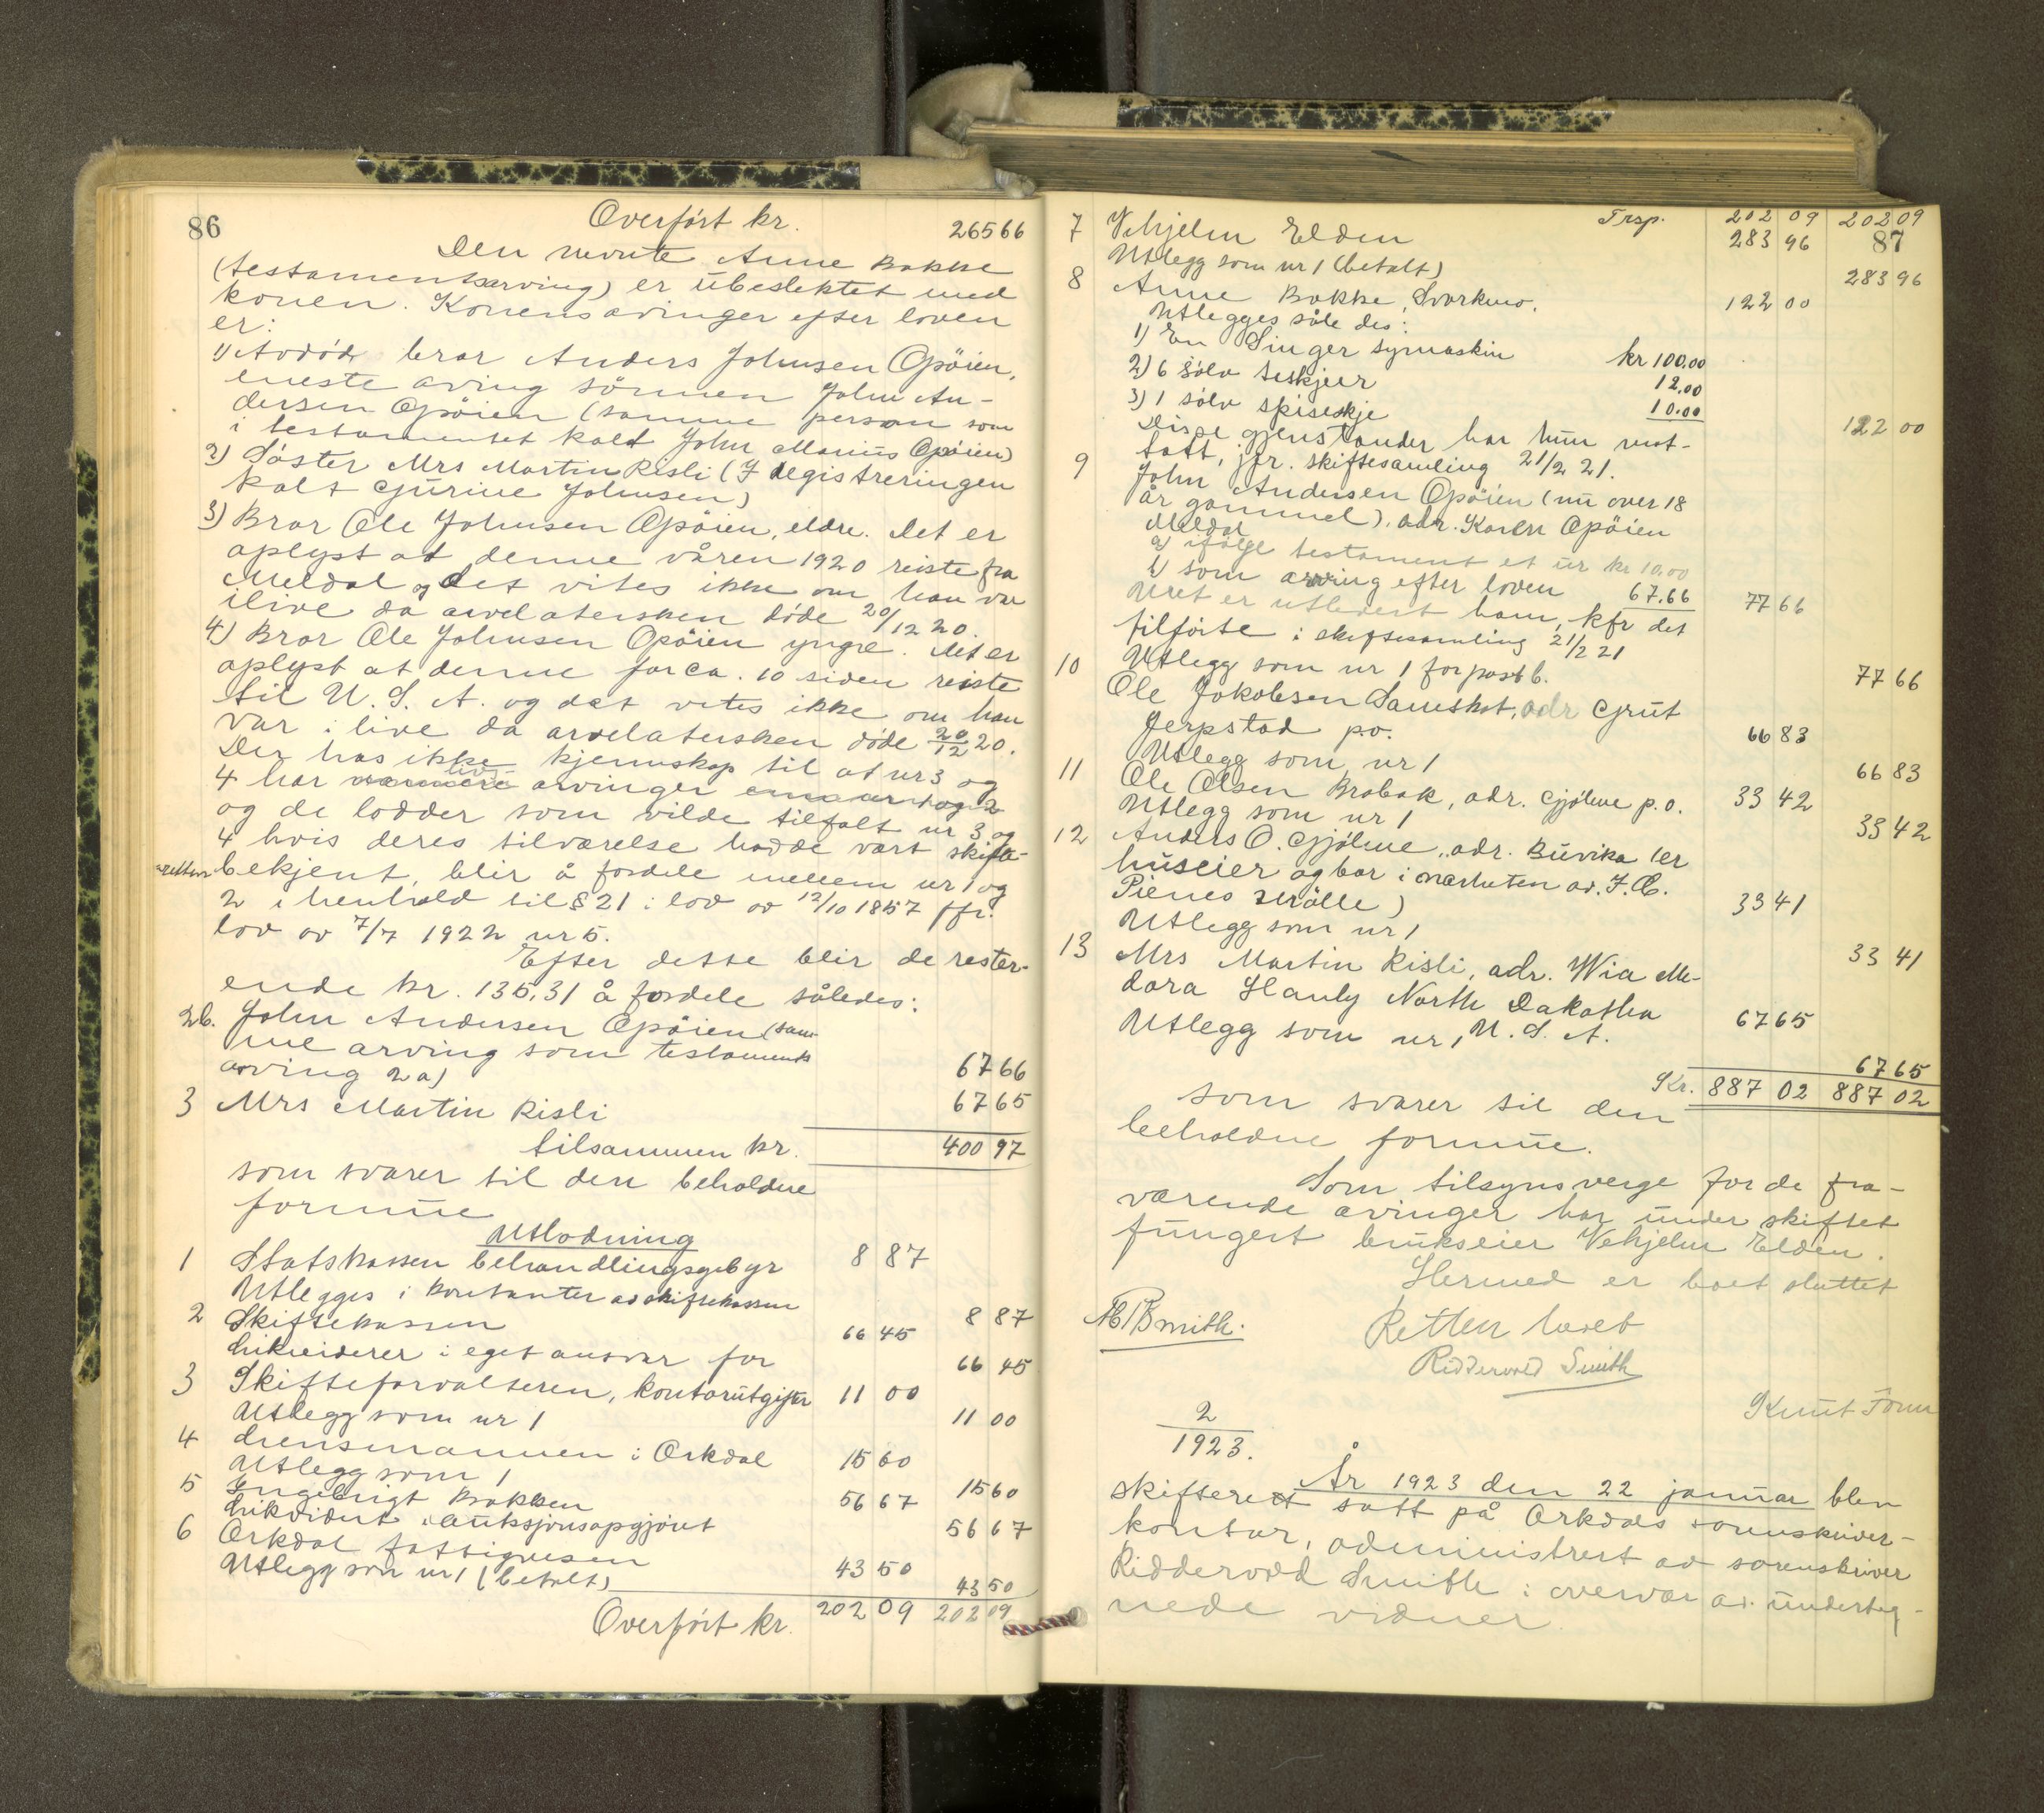 86
Overført kr. 265 66
Den nevnte Anne Bakke
(testamentsarving) er ubeslektet med
konen. Konens arvinger efter loven
er:
1) Avdød bror Anders Johnsen Opöien,
eneste arving sönnen John An-
dersen Opöien (samme person som
i testamentet kalt John Marius Opöien)
2) Söster Mrs Martin Risli (I registreringen
kalt Gurine Johnsen)
3) Bror Ole Johnsen Opöien, eldre. Det er
oplyst at denne våren 1920 reiste fra
Meldal og det vites ikke om han var
ilive da arvelatersken döde 20/12 20.
4) Bror Ole Johnsen Opöien yngre. Det er
oplyst at denne for ca. 10 siden reiste
til U. S. A. og det vites ikke om han
var i live da arvelatersken döde 20/12 20.
Der has ikke kjennskap til at nr 3 og
4 har livs- arvinger
og de lodder som vilde tilfalt nr 3 og
4 hvis deres tilværelse hadde vært skifte-
retten bekjent, blir å fordele mellem nr 1 og
2 i henhold til § 21 i lov av 12/10 1857 jfr.
lov av 7/7 1922 nr 5.
Efter dette blir de rester-
ende kr. 135,31 å fordele således:
2b. John Andersen Opöien (sam-
me arving som testaments
arving 2a) 67 66
3 Mrs Martin Risli 67 65
tilsammen kr. 400 97
som svarer til den beholdne
formue
Utlodning
1 Statskassen behandlingsgebyr 8 87
Utlegges i kontanter av skiftekassen 8 87
2 Skiftekassen 66 45
Likviderer i eget ansvar for 66 45
3 Skifteforvalteren, kontorutgifter 11 00
Utlegg som nr 1 11 00
4 Lensmannen i Orkdal 15 60
Utlegg som 1 15 60
5 Ingebrigt Bakken 56 67
Likvidert i auksjonsopgjöret 56 67
6 Orkdal fattigvesen 43 50
Utlegg som nr 1 (betalt) 43 50
Overfört kr. 202 09 202 09
Trsp. 202 09 202 09
87
7 Vehjelm Elden 283 96
Utlegg som nr 1 (betalt) 283 96
8 Anne Bakke, Svorkmo. 122 00
Utlegges således:
1) En Singer symaskin kr 100.00
2) 6 sölv teskjeer 12.00
3) 1 sölv spiseskje 10.00
122 00
Disse gjenstander har hun mot-
tatt, jfr. skiftesamling 21/2 21.
9 John Andersen Opöien (nu over 18
år gammel), adr. Karen Opöien
Meldal
a) ifölge testament et ur kr 10.00
b) som arving efter loven 67.66 77 66
Uret er utlevert ham, kfr det
tilförte i skiftesamling 21/2 21
Utlegg som nr 1 for post b. 77 66
10 Ole Jakobsen Damskot, adr Grut
Jerpstad po. 66 83
Utlegg som nr 1 66 83
11 Ole Olsen Brabak, adr. Gjölme p.o. 33 42
Utlegg som nr 1 33 42
12 Anders O. Gjölme, adr. Buvika (er
huseier og bor i nærheten av. I. C.
Pienes Mölle) 33 41
Utlegg som nr 1 33 41
13 Mrs Martin Risli, adr. Wia Me-
dora Hanly North Dakotha
U. S. A. 67 65
Utlegg som nr 1 67 65
Kr. 887 02 887 02
som svarer til den
beholdne formue.
Som tilsynsverge for de fra-
værende arvinger har under skiftet
fungert brukseier Vehjelm Elden.
Hermed er boet sluttet
Retten hevet
Ridderold Smith
Knut Tonn
2/1923.
År 1923 den 22 januar blev
skifterett satt på Orkdals sorenskriver-
kontor, administrert av sorenskriver
Riddervold Smith i overvær av underteg-
nede vidner